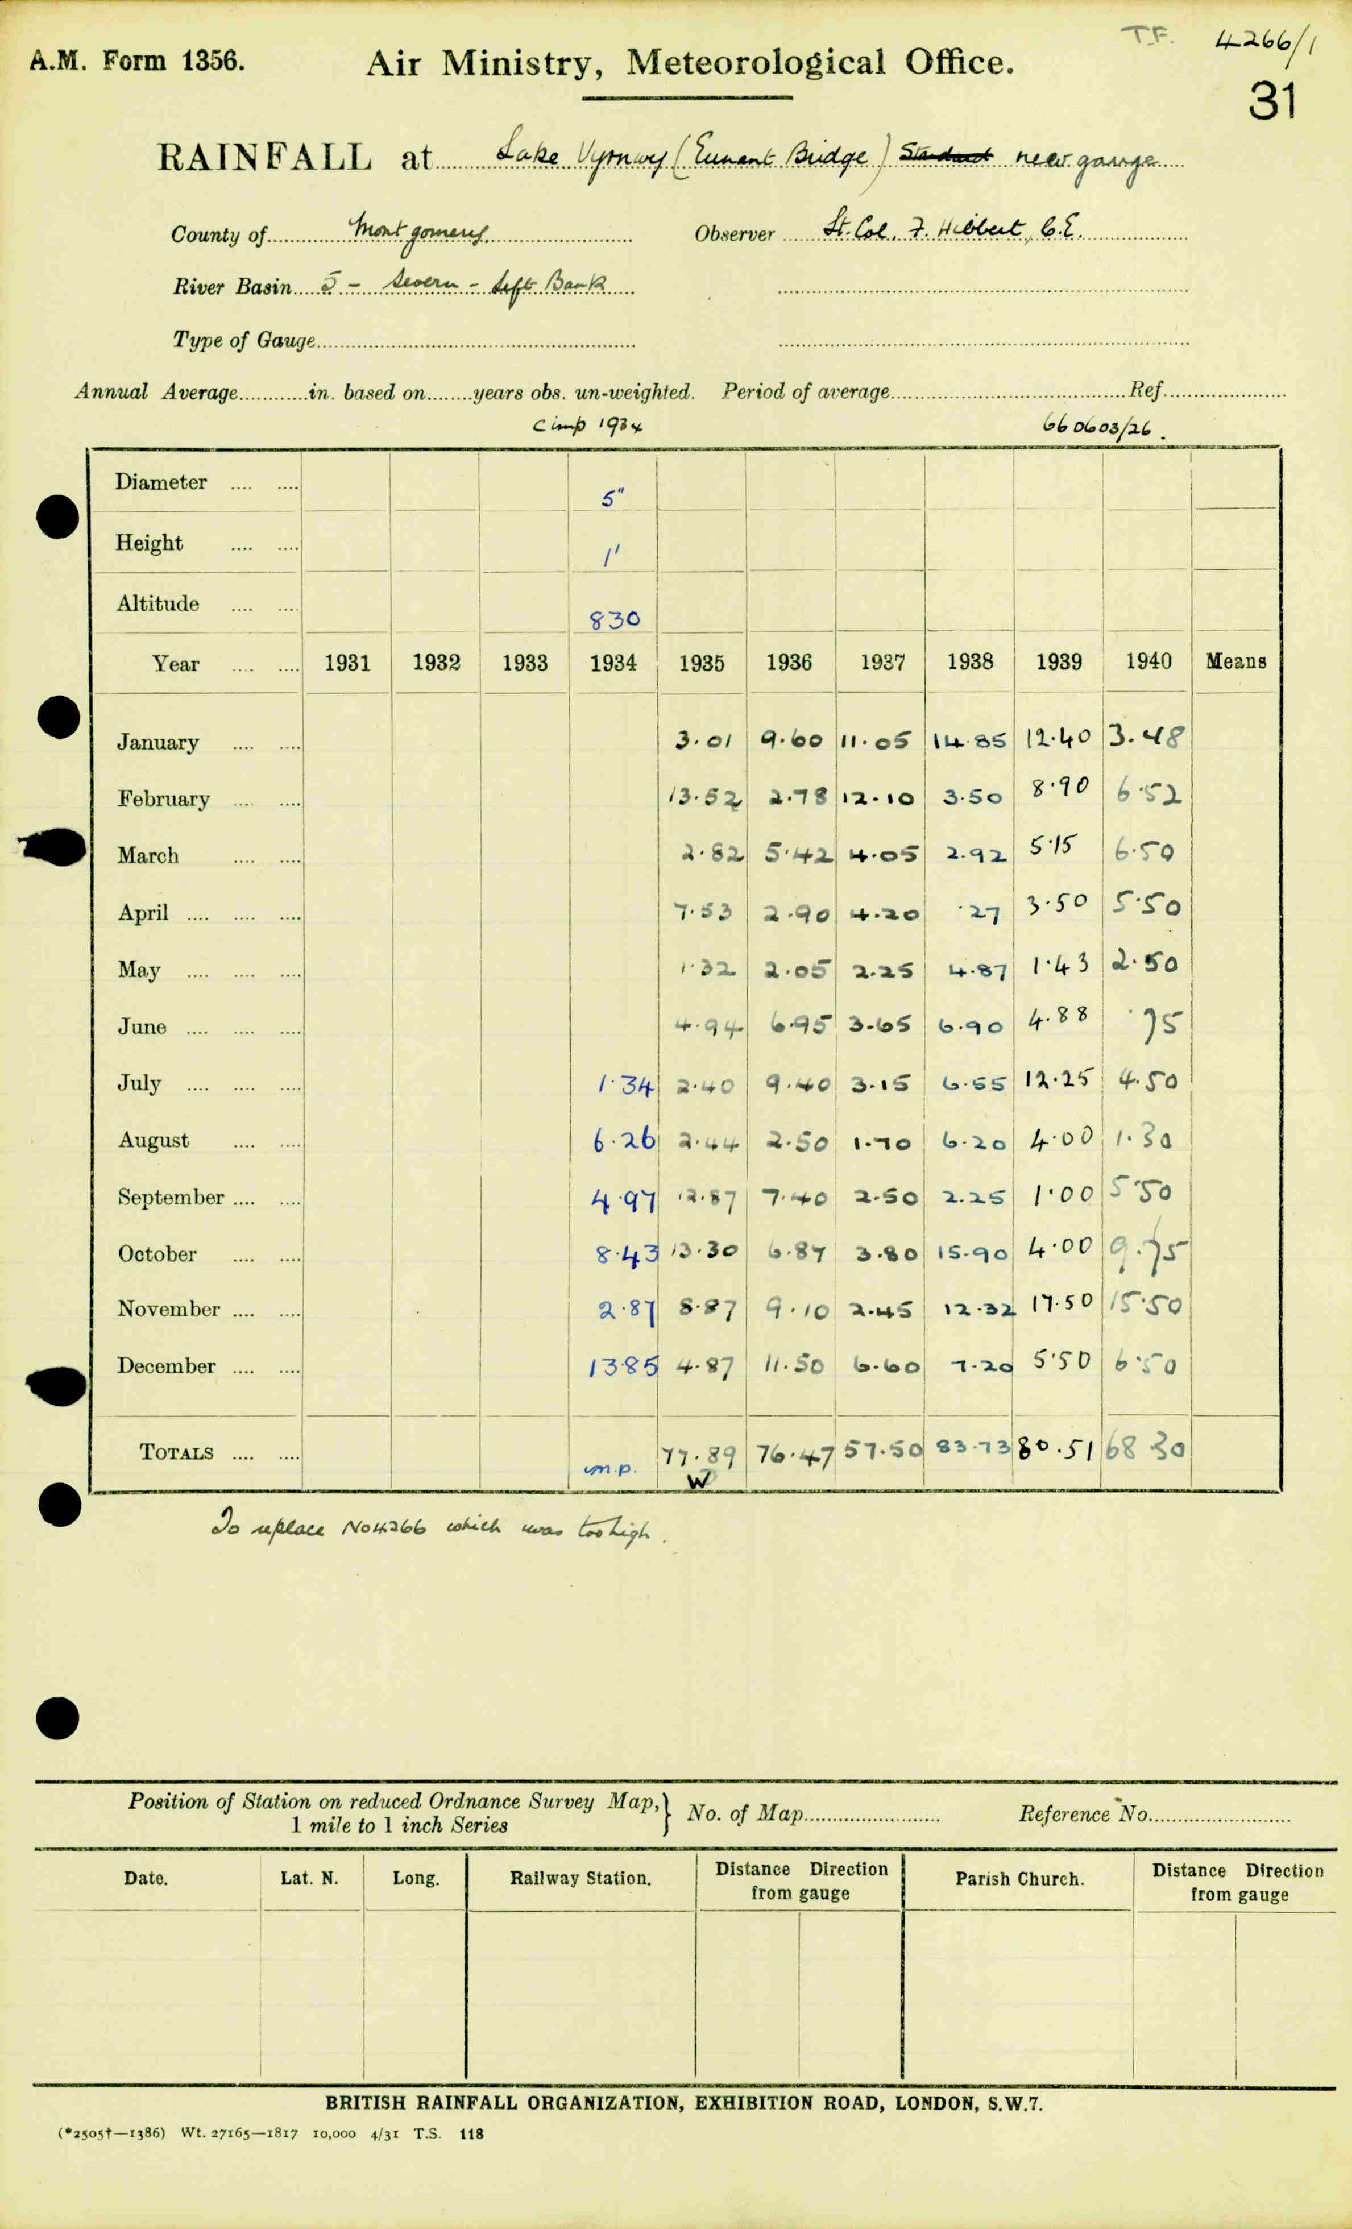 T.F. 4266/1
A.M. Form 1356. Air Ministry, Meteorological Office.
31
RAINFALL at Lake Vyrnwy (Eunant Bridge) Standard new gauge
County of Montgomery Observer Lt. Col. F. Hibbert, C.E.
River Basin 5 - Severn - Left Bank
Type of Gauge
Annual Average in. based on years obs. un-weighted. Period of average Ref.
Cimp 1934 660603/26.
Diameter 5"
Height 1'
Altitude 830
Year 1931 1932 1933 1934 1935 1936 1937 1938 1939 1940 Means
January 3.01 9.60 11.05 14.85 12.40 3.48
February 13.52 2.78 12.10 3.50 8.90 6.52
March 2.82 5.42 4.05 2.92 5.15 6.50
April 7.53 2.90 4.20 .27 3.50 5.50
May 1.32 2.05 2.25 4.87 1.43 2.50
June 4.94 6.95 3.65 6.90 4.88 .75
July 1.34 2.40 9.40 3.15 6.55 12.25 4.50
August 6.26 2.44 2.50 1.70 6.20 4.00 1.30
September 4.97 12.87 7.40 2.50 2.25 1.00 5.50
October 8.43 13.30 6.87 3.80 15.90 4.00 9.75
November 2.87 8.87 9.10 2.45 12.32 17.50 15.50
December 13.85 4.87 11.50 6.60 7.20 5.50 6.50
TOTALS m.p. 77.89 76.47 57.50 83.73 80.51 68.30
W
To replace No 4266 which was too high.
Position of Station on reduced Ordnance Survey Map, } No. of Map Reference No.
1 mile to 1 inch Series
Date. Lat. N. Long. Railway Station. Distance Direction from gauge Parish Church. Distance Direction from gauge
BRITISH RAINFALL ORGANIZATION, EXHIBITION ROAD, LONDON, S.W.7.
(*2505†—1386) Wt. 27165—1817 10,000 4/31 T.S. 118